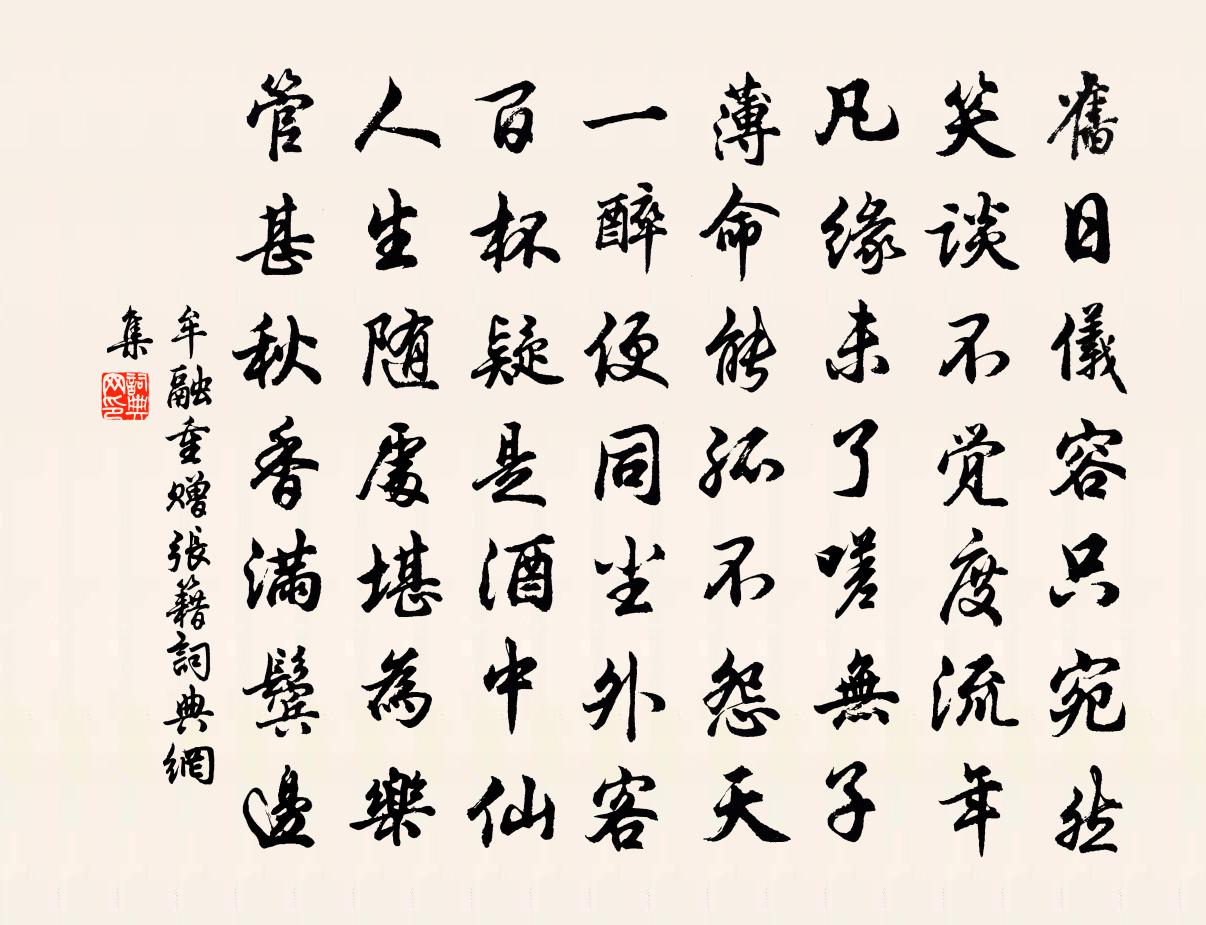 舊日儀容只宛然
笑談不覚度流年
凡緣未了嗟無子
薄命能孤不怨天
一醉便同尘外客
百杯疑是酒中仙
人生随處堪為樂
管甚秋香滿鬓邊
牟融重赠張籍詞典網
集
詞典
网印